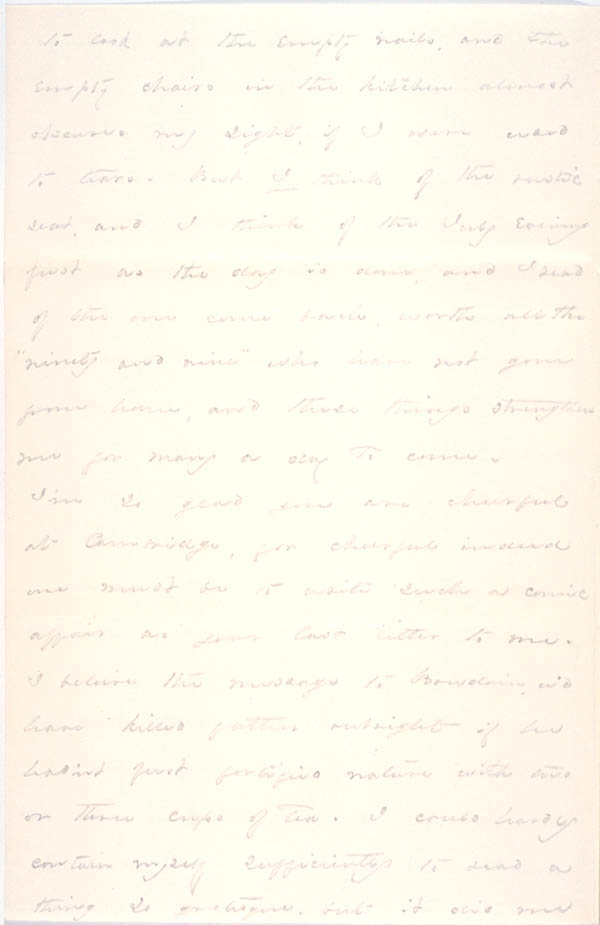 to look at the empty nails, and the
empty chairs in the kitchen almost
obscures my sight, if I were used
to tears. But I think of the rustic
seat, and I think of the July Evening
just as the day is done, and I read
of the one come back, worth all the
"ninety and nine" who have not gone
from home, and these things strengthen
me for many a day to come.
I'm so glad you are cheerful
at Cambridge, for cheerful indeed
one must be to write such a comic
affair as your last letter to me.
I believe the message to Bowdoin, w'd
have killed father outright if he
hadn't just fortified nature with two
or three cups of tea. I could hardly
contain myself sufficiently to read a
thing so grotesque, but it did me